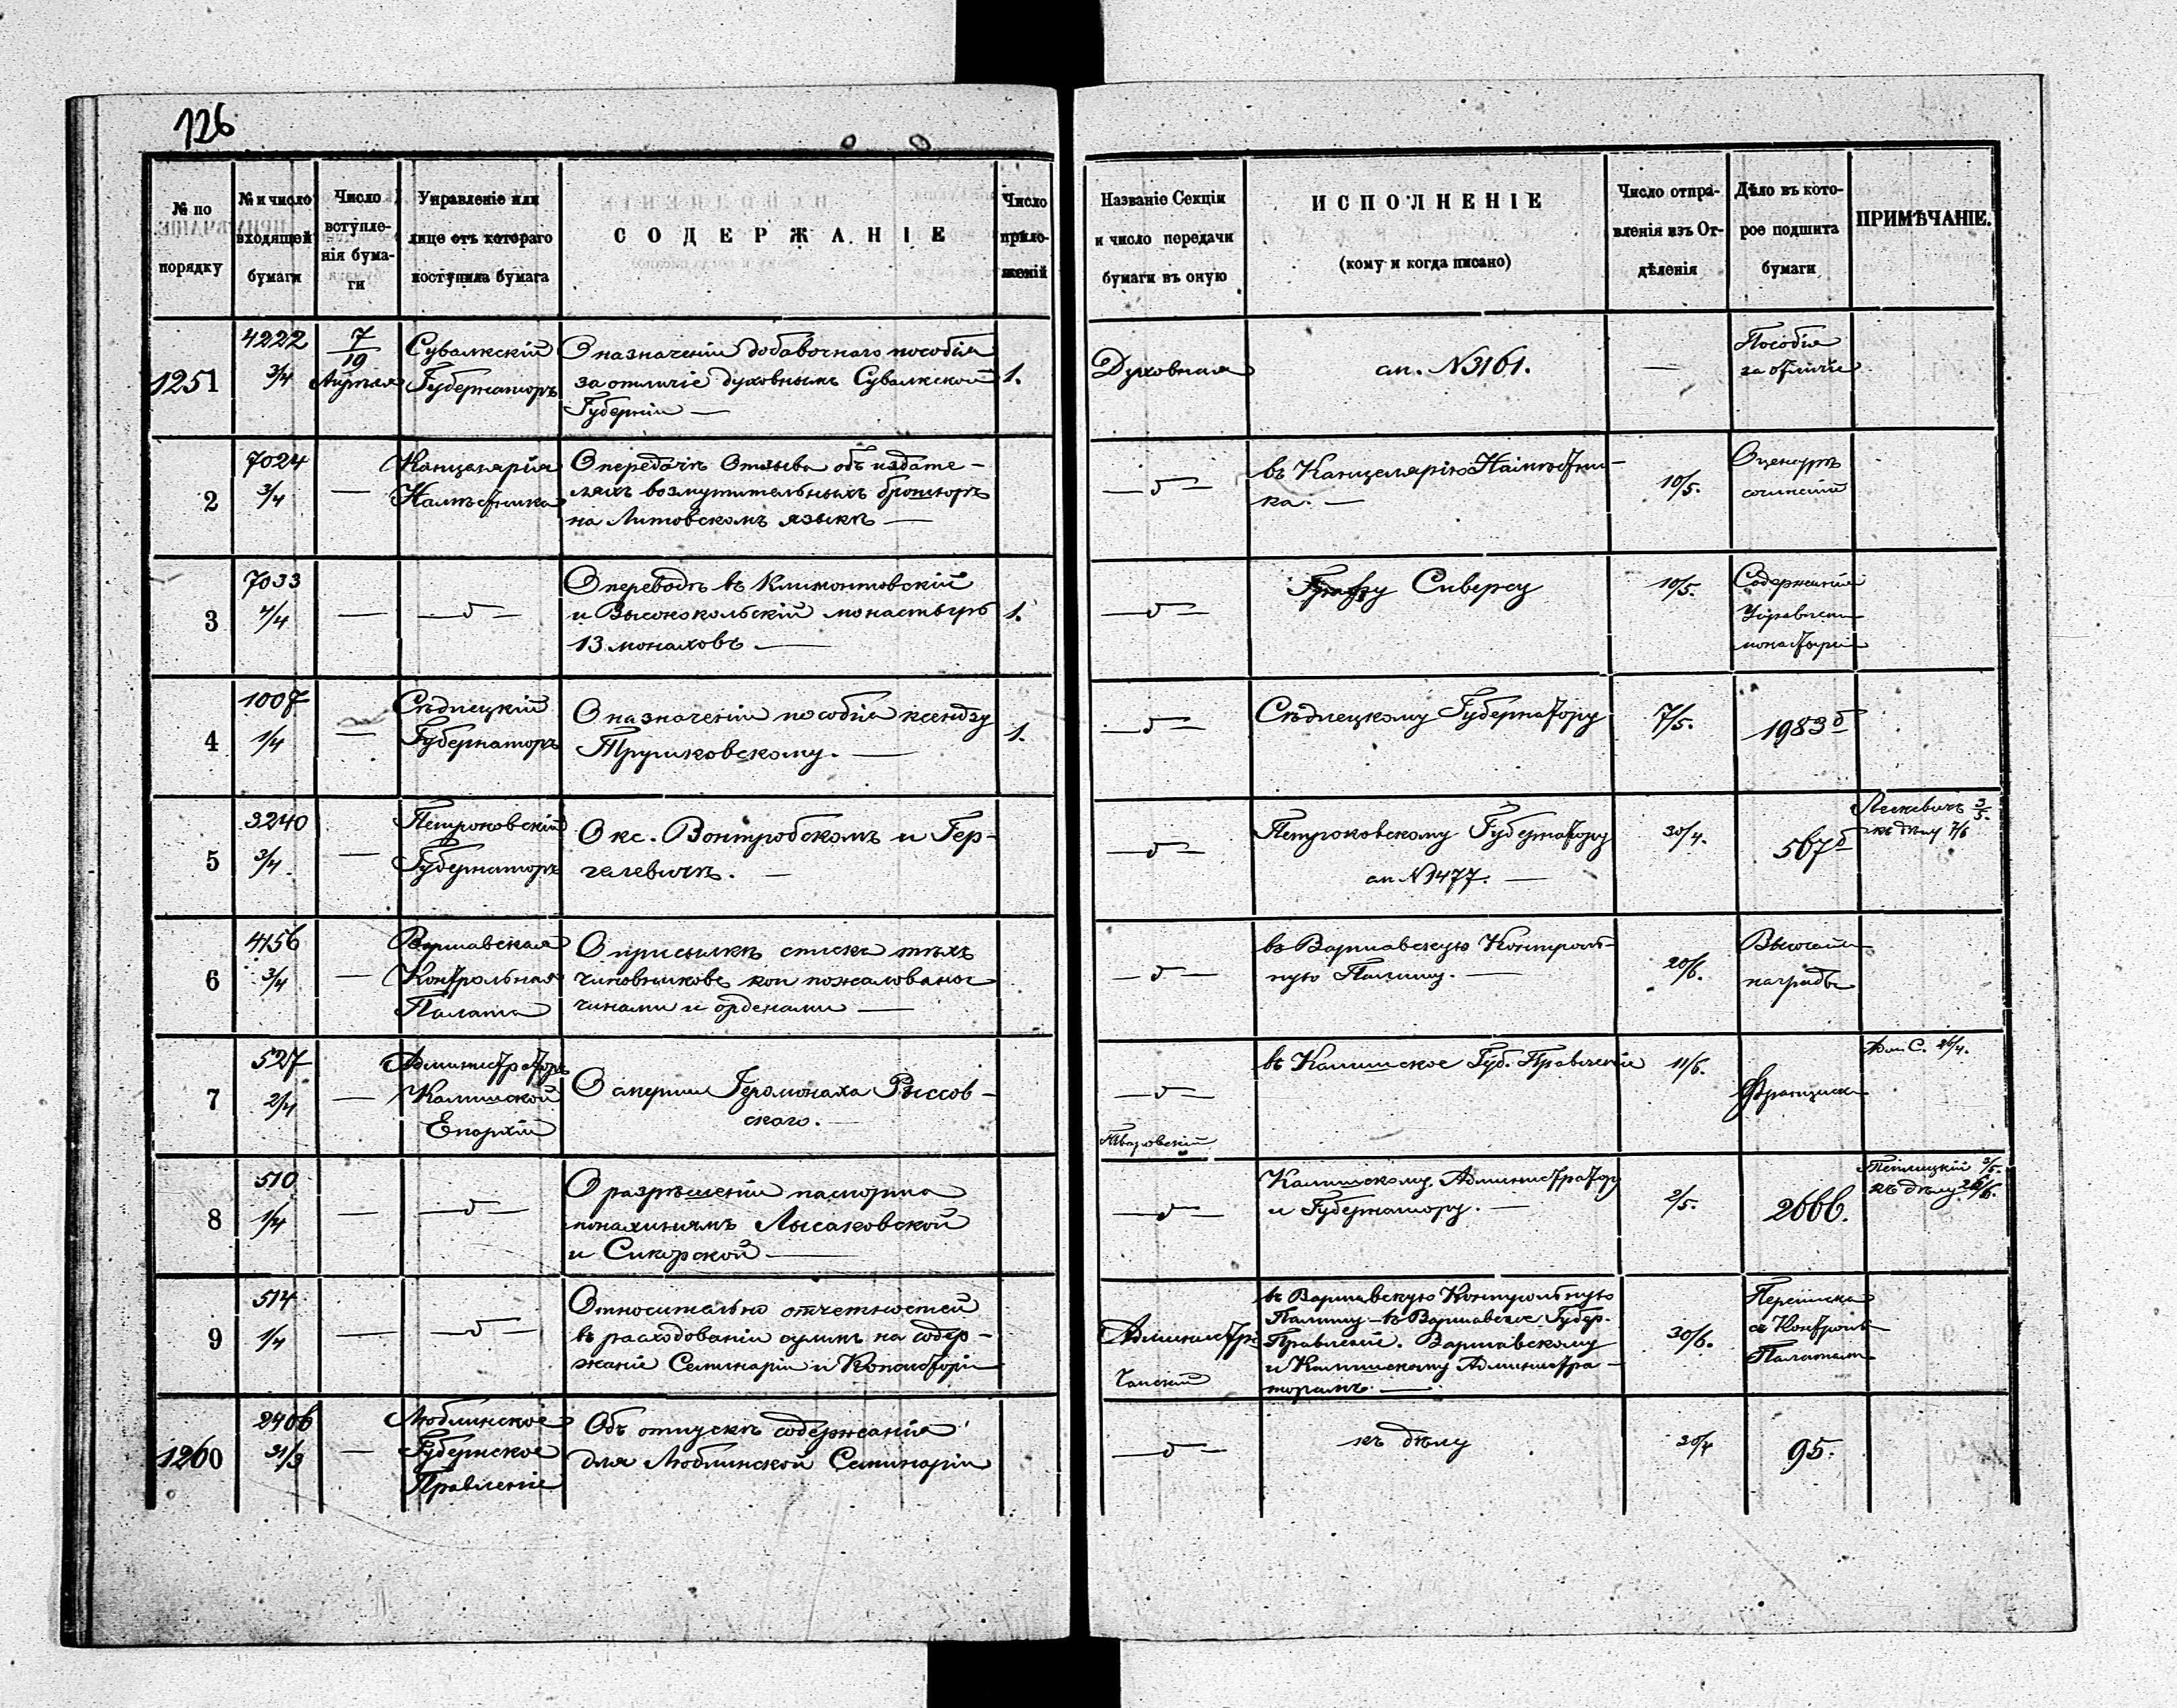 126
№ по порядку
№ и число входящей бумаги
Число вступле-нія бума-ги
Управленіе или лице отъ котораго поступила бумага
СОДЕРЖАНІЕ
Число прило-женій
Названіе Секціи и число передачи бумаги въ оную
ИСПОЛНЕНІЕ
(кому и когда писано)
Число отпра-вленія изъ От-дѣленія
Дѣло въ кото-рое подшита бумаги
ПРИМѢЧАНІЕ.
1251
4222
3/4
7/19
Апрѣля
Сувалкскій
Губернаторъ
О назначеніи добавочнаго пособія
за отличіе духовнымъ Сувалкской
Губерніи —
1.
Духовная
см. № 3161.
—
Пособія
за отличіе
2
7024
3/4
—
Канцелярія
Намѣстника
О передачѣ Отзыва объ издате-
ляхъ возмутительныхъ брошюръ
на Литовскомъ языкѣ —
— " —
въ Канцелярію Намѣстни-
ка. —
10/5.
О цензурѣ
сочиненій
3
7033
4/4
—
— " —
О переводѣ въ Климонтовскій
и Высококольскій монастырь
13 монаховъ —
1.
— " —
Графу Сиверсу
10/5.
Содержаніе
монастырей
4
1007
1/4
—
Сѣдлецкій
Губернаторъ
О назначеніи пособія ксендзу
Трушковскому. —
1.
— " —
Сѣдлецкому Губернатору
7/5.
1983 б
5
3240
3/4
—
Петроковскій
Губернаторъ
О кс. Вонтробскомъ и Гер-
галевичѣ. —
— " —
Петроковскому Губернатору
см № 1477. —
30/4.
567 б
Лескевичъ 3/5.
къ дѣлу 7/6
6
4156
3/4
—
Варшавская
Контрольная
Палата
О присылкѣ списка тѣхъ
чиновниковъ кои пожалованы
чинами и орденами —
— " —
въ Варшавскую Контроль-
ную Палату. —
20/6.
Высочайш
награды
7
527
2/4
—
Администраторъ
Калишской
Епархіи
О смерти Іеромонаха Рыссов-
скаго. —
— " —
въ Калишское Губ. Правленіе
11/6.
Францискан
26/4.
8
510
1/4
—
— " —
О разрѣшеніи паспорта
монахинямъ Лысаковской
и Сикорской —
— " —
Калишскому Администратору
и Губернатору. —
2/5.
2666.
2/5.
къ дѣлу 26/6.
9
514
1/4
—
— " —
Относительно отчетностей
въ расходованіи суммъ на содер-
жаніе Семинаріи и Консисторіи
Администр.
въ Варшавскую Контрольную
Палату – въ Варшавское Губер.
Правленіе. Варшавскому
и Калишскому Администра-
торамъ. —
30/6.
Переписка
съ Контроль
Палатами
1260
2406
31/3
—
Люблинское
Губернское
Правленіе
Объ отпускѣ содержанія
для Люблинской Семинаріи
— " —
къ дѣлу
30/4
95.